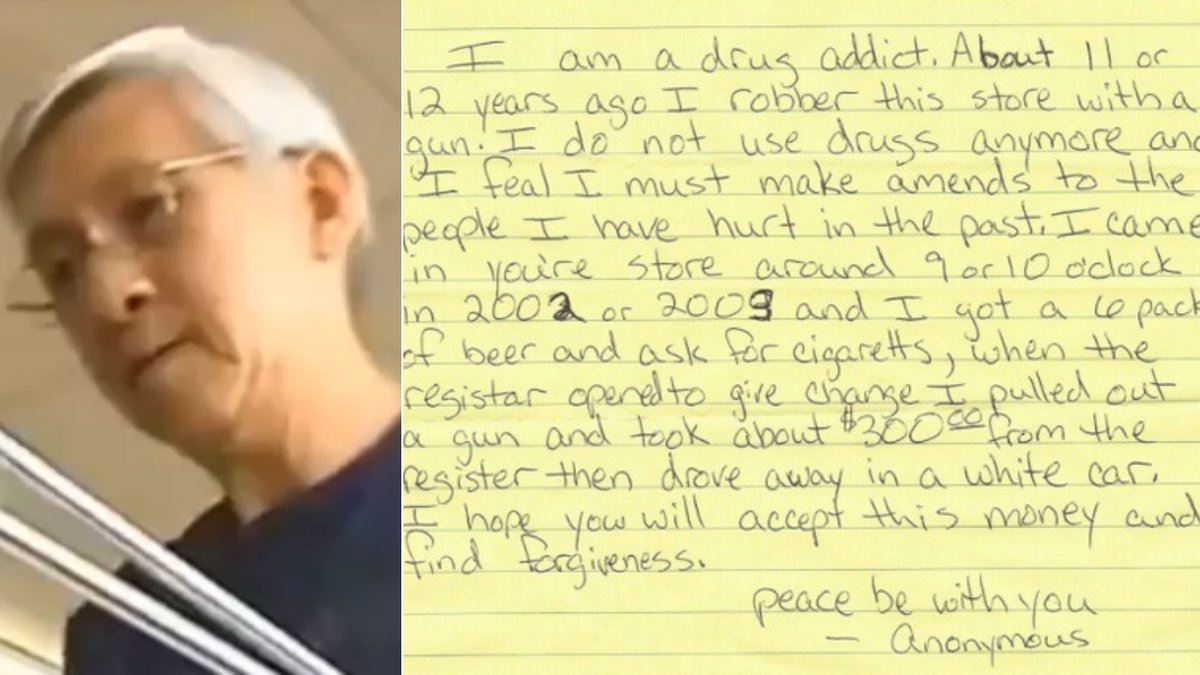 I am a drug addict. About 11 or
12 years ago I robber this store with a
gun. I do not use drugs anymore and
I feal I must make amends to the
people I have hurt in the past. I came
in you're store around 9 or 10 o'clock
in 2002 or 2003 and I got a 6 pack
of beer and ask for cigaretts, when the
registar opened to give change I pulled out
a gun and took about $300.00 from the
register then drove away in a white car.
I hope you will accept this money and
find forgiveness.
peace be with you
— Anonymous